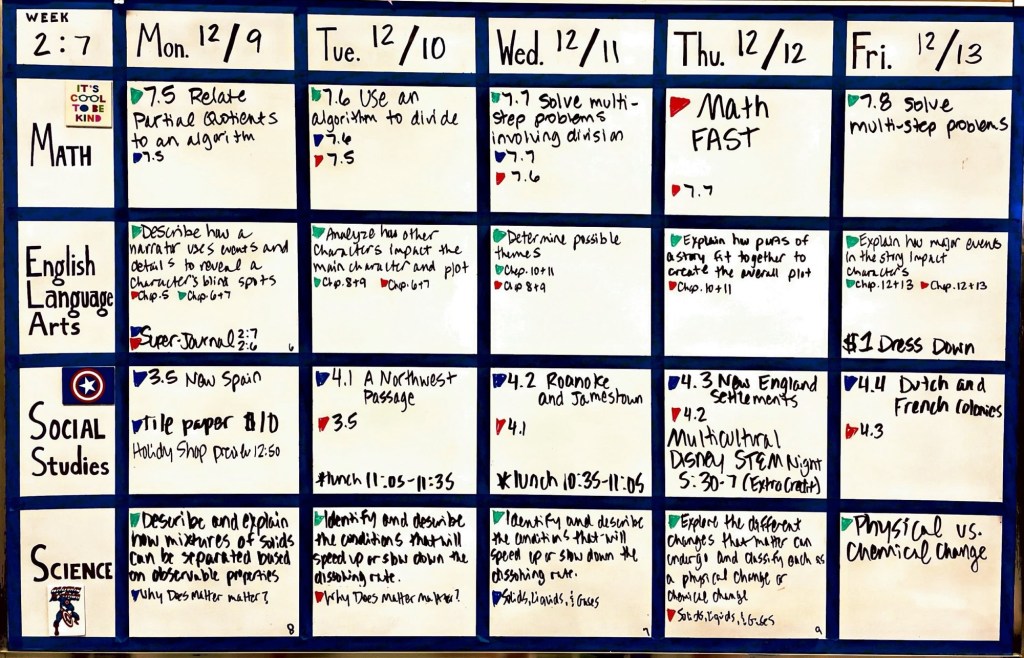 WEEK
2:7
Mon. 12/9
Tue. 12/10
Wed. 12/11
Thu. 12/12
Fri. 12/13
IT'S
COOL
TO BE
KIND
MATH
7.5 Relate
Partial Quotients
to an algorithm
7.5
7.6 Use an
algorithm to divide
7.6
7.5
7.7 Solve multi-
step problems
involving division
7.7
7.6
Math
FAST
7.7
7.8 Solve
multi-step problems
English
Language
Arts
Describe how a
narrator uses events and
details to reveal a
character's blind spots
Chp. 5 Chp. 6+7
Super-Journal 2:7
2:6
6
Analyze how other
characters impact the
main character and plot
Chp. 8+9 Chp. 6+7
Determine possible
themes
Chp. 10+11
Chp 8+9
Explain how parts of
a story fit together to
create the overall plot
Chp. 10+11
Explain how major events
in the story impact
characters
Chp. 12+13 Chp. 12+13
$1 Dress Down
SOCIAL
Studies
3.5 New Spain
Tile paper $10
Holiday Shop preview 12:50
4.1 A Northwest
Passage
3.5
*lunch 11:05-11:35
4.2 Roanoke
and Jamestown
4.1
*lunch 10:35-11:05
4.3 New England
Settlements
4.2
Multicultural
Disney STEM Night
5:30-7 (Extra Credit)
4.4 Dutch and
French Colonies
4.3
SCIENCE
Describe and explain
how mixtures of solids
can be separated based
on observable properties
Why Does matter matter?
8
Identify and describe
the conditions that will
speed up or slow down the
dissolving rate.
Why Does matter matter?
Identify and describe
the conditions that will
speed up or slow down the
dissolving rate.
Solids, Liquids, & Gases
7
Explore the different
changes that matter can
undergo and classify each as
a physical change or
chemical change
Solids, liquids, & Gases
9
Physical vs.
Chemical change